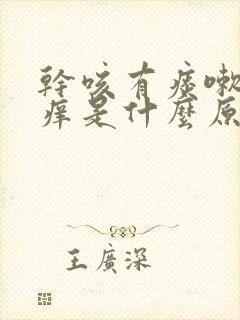 幹咳有痰嗽
痒是什麼原
王廣深